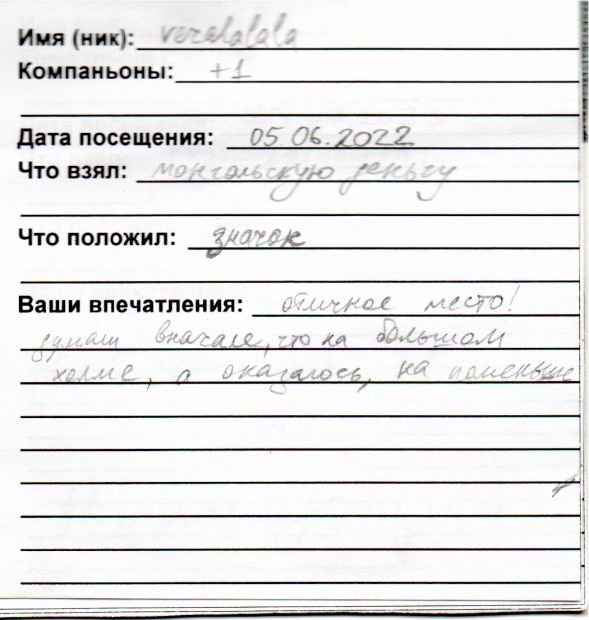 Имя (ник): veralalala
Компаньоны: +1
Дата посещения: 05.06.2022
Что взял: монгольскую деньгу
Что положил: значок
Ваши впечатления: отличное место!
думали вначале, что на большом
холме, а оказалось, на поменьше